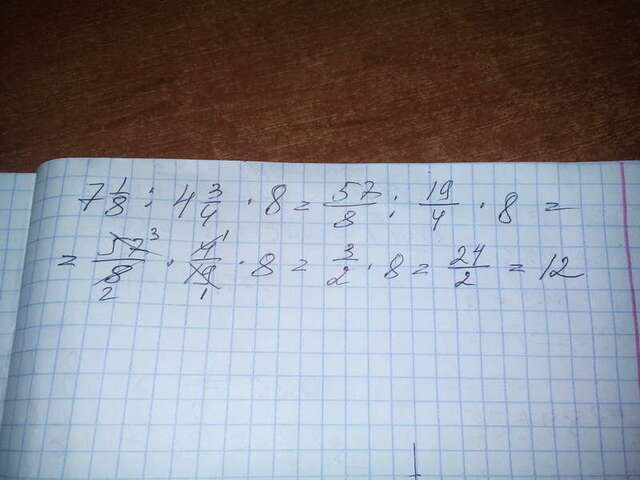 7 1/8 : 4 3/4 · 8 = 57/8 : 19/4 · 8 =
= 57/8 3 2 · 4/19 1 1 · 8 = 3/2 · 8 = 24/2 = 12